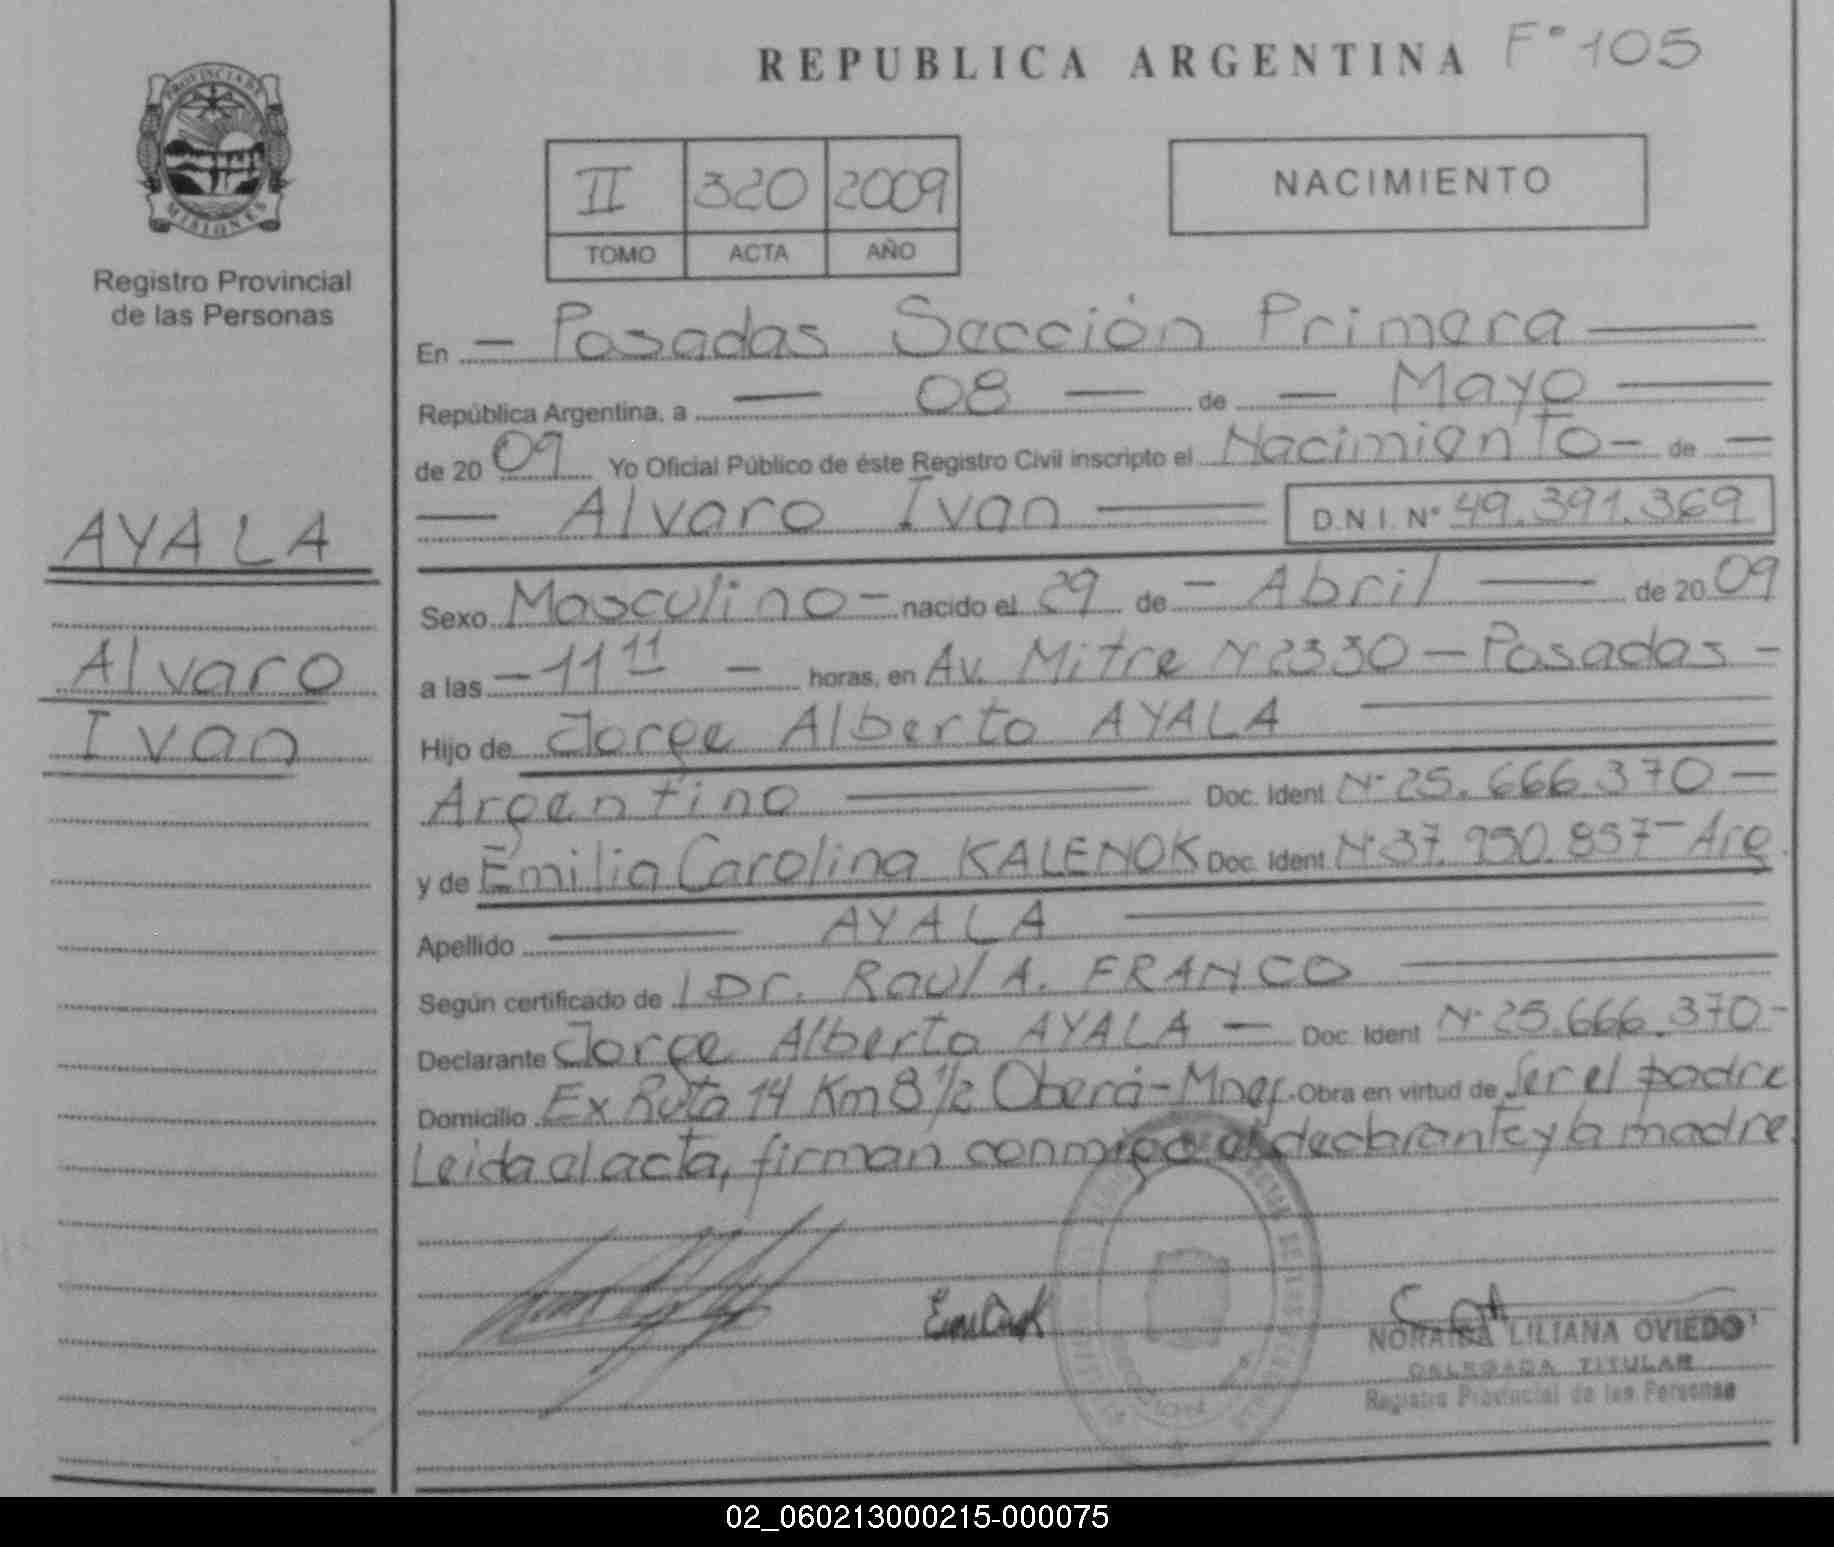 REPUBLICA ARGENTINA F° 105
PROVINCIA DE
MISIONES
Registro Provincial
de las Personas
II 320 2009
TOMO ACTA AÑO
NACIMIENTO
AYALA
Alvaro
Ivan
En - Posadas Sección Primera
República Argentina, a - 08 - de - Mayo
de 20 09 Yo Oficial Público de éste Registro Civil inscripto el Nacimiento - de -
Alvaro Ivan D.N.I. N° 49.391.369
Sexo Masculino - nacido el 29 de - Abril de 20 09
a las - 11 11 - horas, en Av. Mitre N° 2330 - Posadas -
Hijo de Jorge Alberto AYALA
Argentino Doc. Ident. N° 25.666.370 -
y de Emilia Carolina KALENOK Doc. Ident. N° 37.950.857 - Arg.
Apellido AYALA
Según certificado de Dr. Raul A. FRANCO
Declarante Jorge Alberto AYALA - Doc. Ident N° 25.666.370 -
Domicilio Ex Ruta 14 Km 8 1/2 Oberá - Mnes. Obra en virtud de ser el padre
Leida el acta, firman conmigo el declarante y la madre.
NORAINA LILIANA OVIEDO
DELEGADA TITULAR
Registro Provincial de las Personas
02_060213000215-000075